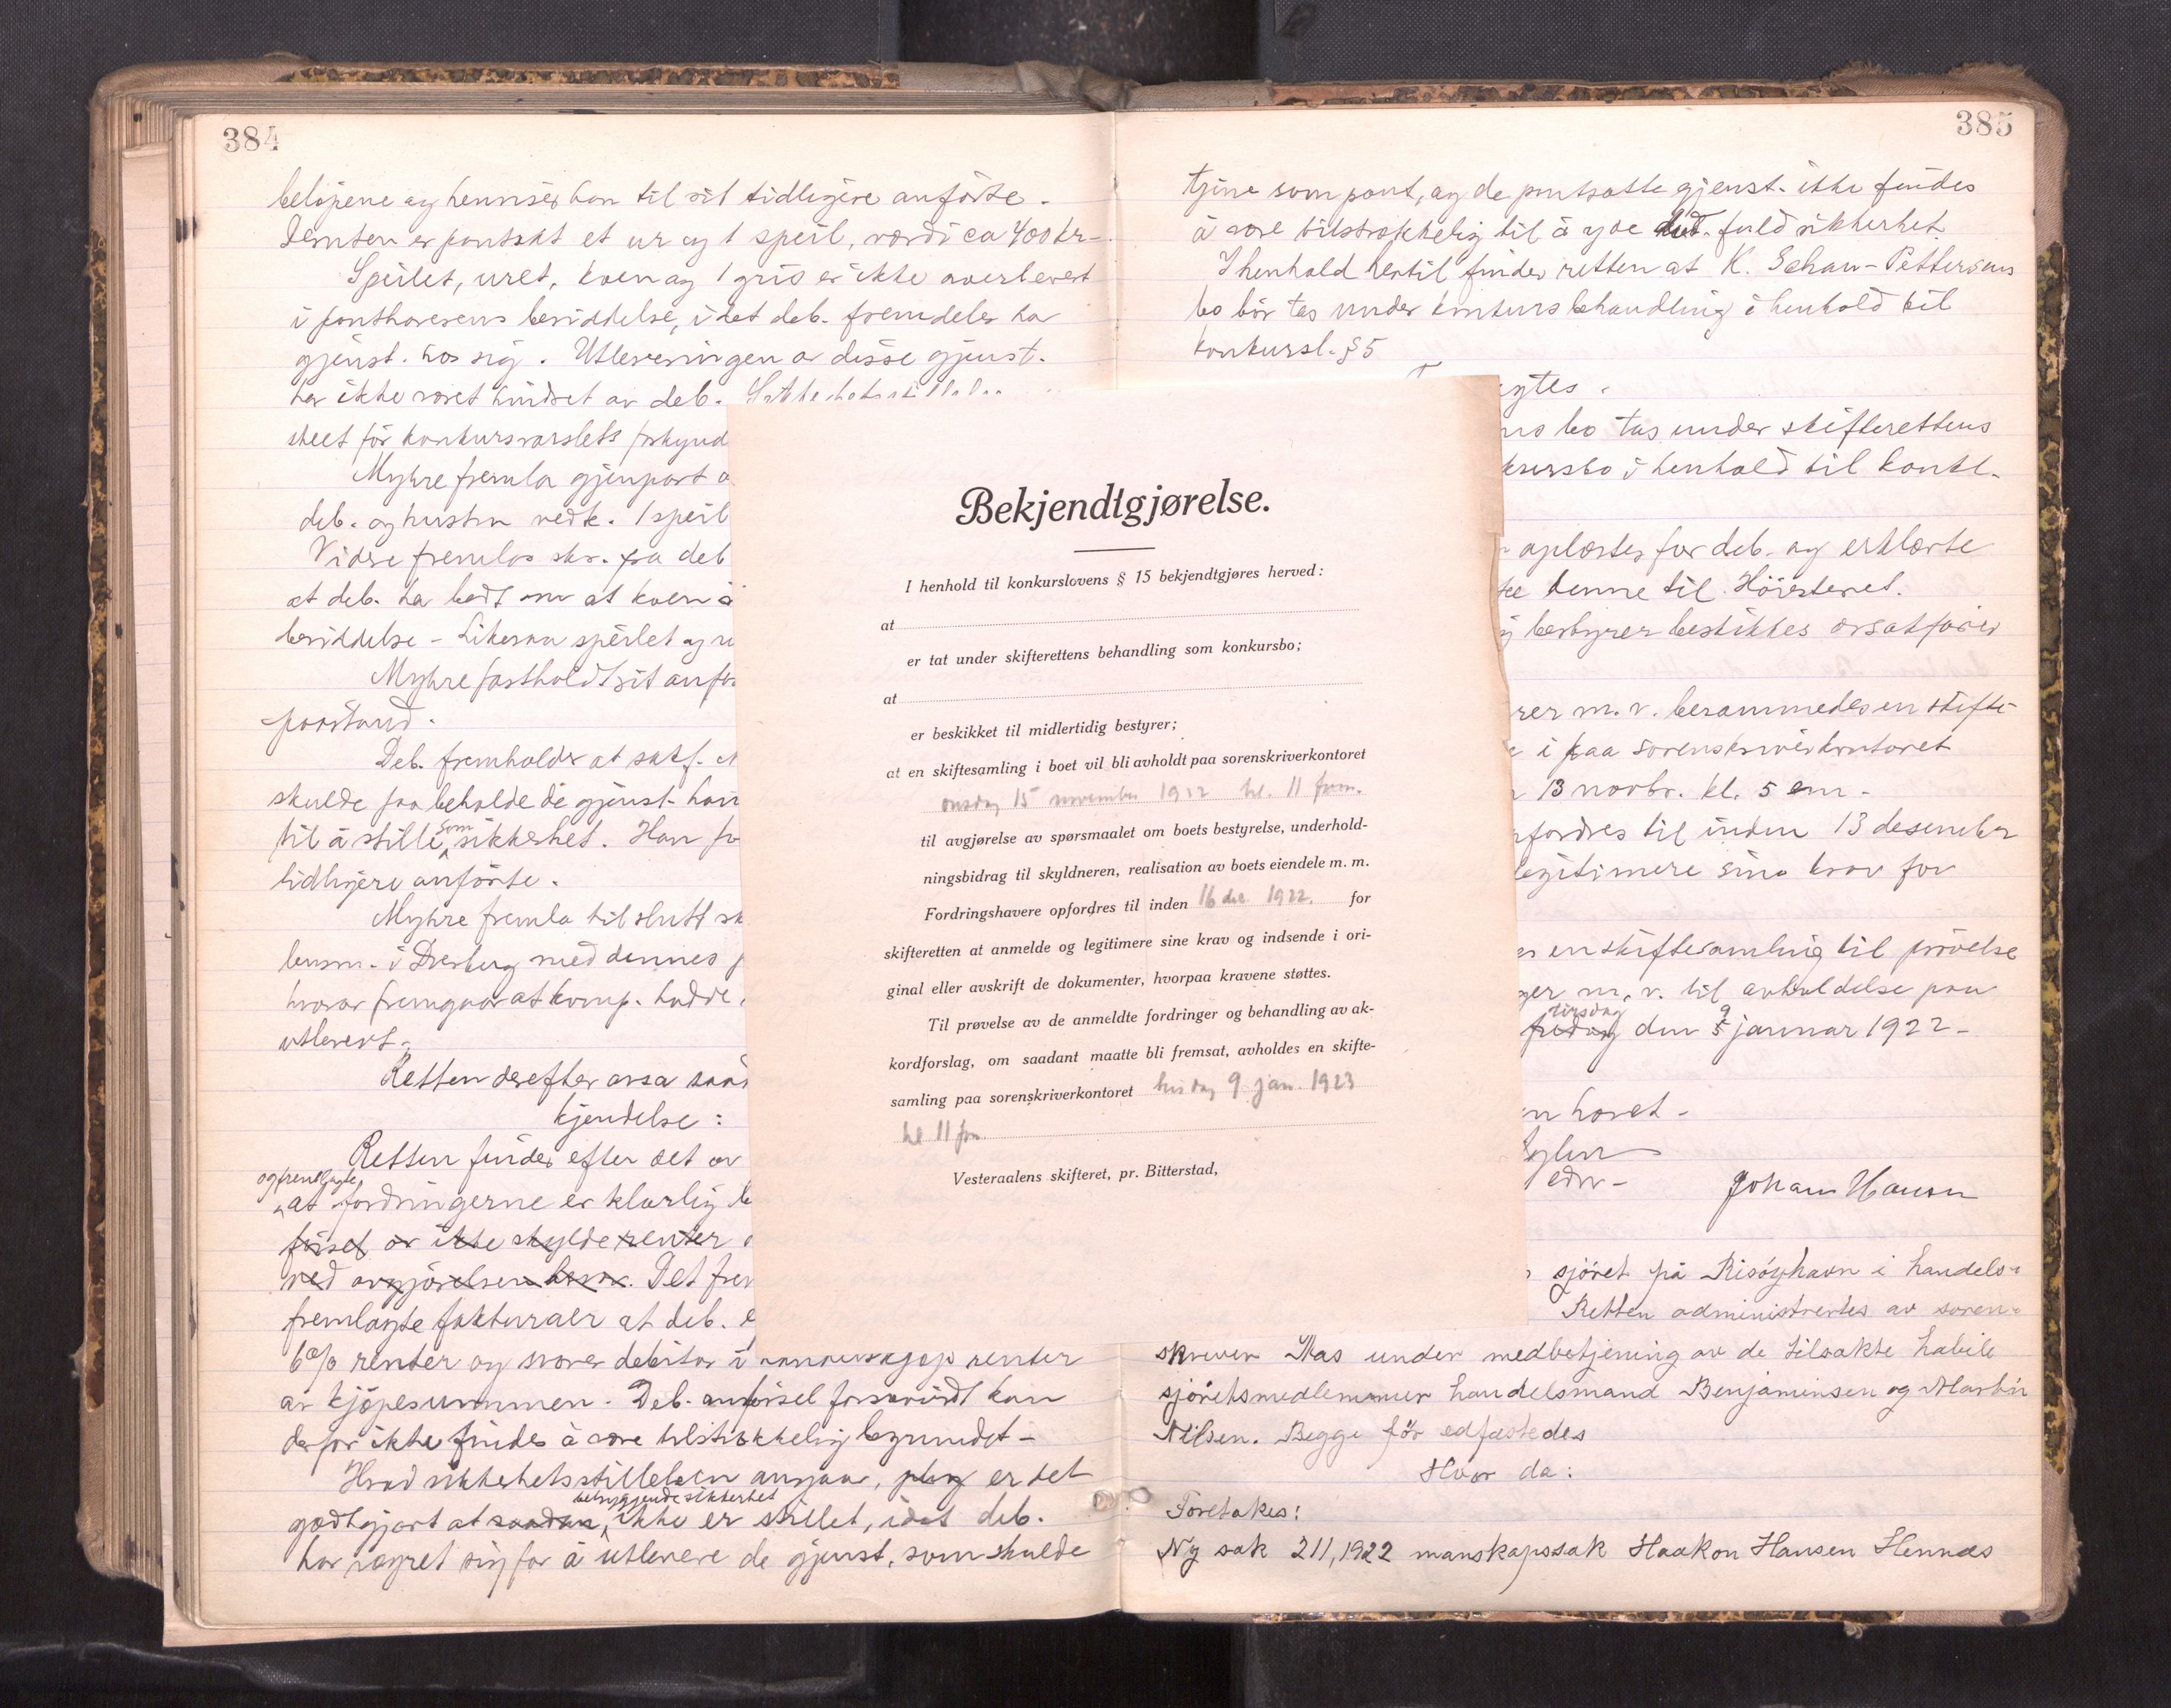 384
beløpene og henviser han til sit tidligere anførte.
Desuten er pantsat et ur og 1 speil, værdi ca 400 kr-
Speilet, uret, koen og 1 gris er ikke overlevert
i panthaverens besiddelse, idet deb. fremdeles har
gjenst. hos sig. Utleveringen av disse gjenst.
har ikke været hindret av deb.
skeet før konkursvarslets forkynd
Myhre fremla gjenpart a
deb. og hustru vedk. 1 speil
Videre fremlas skr. fra deb
at deb. har bedt om at koen
besiddelse - Likesaa speilet og u
Myhre fastholdt sit anfø
paastand.
Deb. fremholder at sakf.
skulde faa beholde de gjenst. han
til å stille som sikkerhet. Han
tidligere anførte.
Myhre fremla til slutt sk
lensm. i Dverberg med dennes
hvorav fremgaar at komp. hadde
utlevert.
Retten derefter avsa saad
kjendelse:
Retten finder efter det av
og fremlagte
at fordringerne er klarlig b
førsel ikke skylde renter
ved avgjørelsen Det frem
fremlagte fakturaer at deb.
6% renter og svarer debitor i renter
av kjøpesummen. Deb. anførsel forsaavidt kan
derfor ikke findes å være tilstrækkelig begrundet-
Hvad sikkerhetsstillelsen angaar, er det
betryggende sikkerhet
godtgjort at saadan ikke er stillet, idet deb.
har vægret sig for å utlevere de gjenst, som skulde
385
tjene som pant, og de pantsatte gjenst. ikke findes
å være tilstrækkelig til å gjøe fuld sikkerhet.
I henhold hertil finder retten at K. Schau-Pettersens
bo bør tas under konkursbehandling i henhold til
konkursl. § 5
gtes.
ns bo tas under skifterettens
kursbo i henhold til konkl.
oplæstes for deb. og erklærte
denne til Høiesteret.
bestyrer beskikkes overretssakfører
rer m.v. berammedes en skifte-
i paa sorenskriverkontoret
13 novbr. kl. 5 em-
fordres til inden 13 desember
legitimere sine krav for
es en skiftesamling til prøvelse
ger m.v. til avholdelse paa
tirsdag 9
fredag den 5 januar 1922-
en hævet-
edsv-
Johan Hansen
sjøret på Risøyhavn i handels-
Retten administrertes av soren-
skriver Mas under medbetjening av de tilsakte habile
sjøretsmedlemmer handelsmand Benjaminsen og Martin
Nilsen. Begge før edfæstedes
Hvor da:
Foretakes:
Ny sak 211, 1922 manskapssak Haakon Hansen Hennes
Bekjendtgjørelse.
I henhold til konkurslovens § 15 bekjendtgjøres herved:
at
er tat under skifterettens behandling som konkursbo;
at
er beskikket til midlertidig bestyrer;
at en skiftesamling i boet vil bli avholdt paa sorenskriverkontoret
onsdag 15 november 1922 kl. 11 form.
til avgjørelse av spørsmaalet om boets bestyrelse, underhold-
ningsbidrag til skyldneren, realisation av boets eiendele m. m.
Fordringshavere opfordres til inden 16 des. 1922. for
skifteretten at anmelde og legitimere sine krav og indsende i ori-
ginal eller avskrift de dokumenter, hvorpaa kravene støttes.
Til prøvelse av de anmeldte fordringer og behandling av ak-
kordforslag, om saadant maatte bli fremsat, avholdes en skifte-
samling paa sorenskriverkontoret tirsdag 9 jan. 1923
kl 11 fm.
Vesteraalens skifteret, pr. Bitterstad,